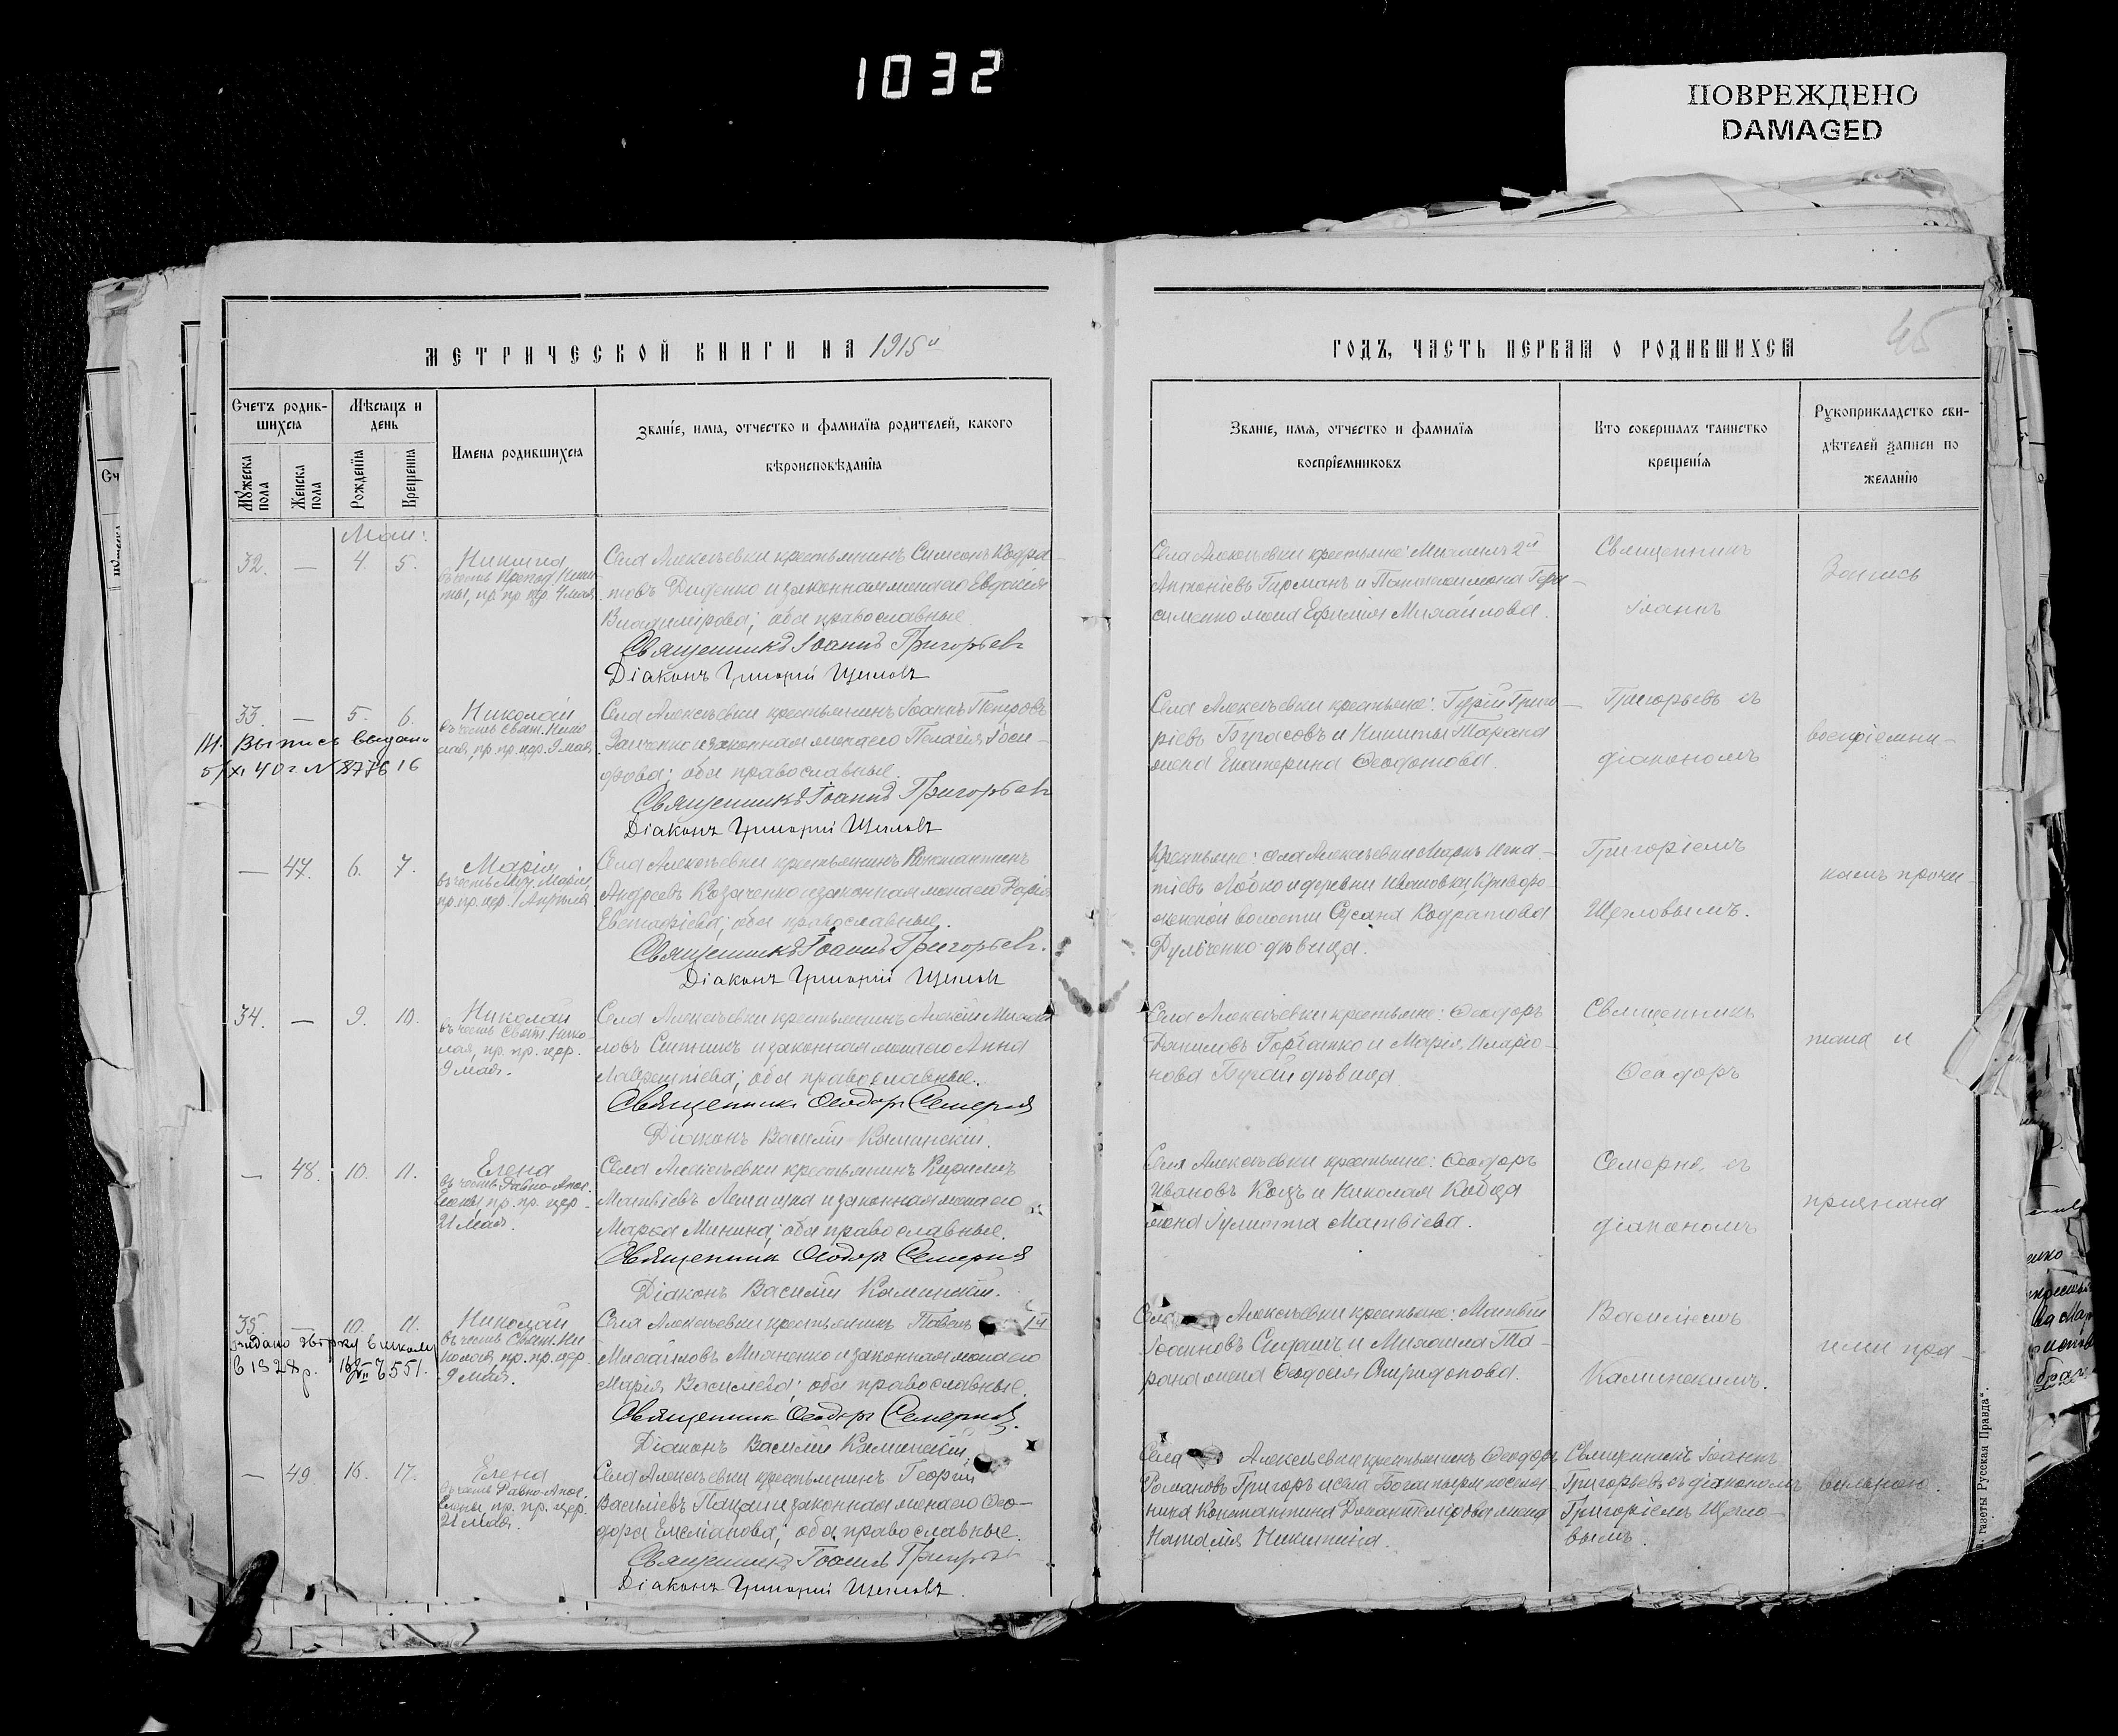 1032
ПОВРЕЖДЕНО
DAMAGED
МЕТРИЧЕСКОЙ КНИГИ НА 1915й
ГОДЪ, ЧАСТЬ ПЕРВАѦ О РОДИВШИХСѦ
45
Счетъ родив-
шихсѧ
Мѣсѧцъ и
день
Мꙋжеска
пола
Женска
пола
Рожденїѧ
Крещенїѧ
Имена родившихсѧ
Званїе, имѧ, отчество и фамилїѧ родителей, какого
вѣроисповѣданїѧ
Званїе, имѧ, отчество и фамилїѧ
воспрїемниковъ
Кто совершалъ таинство
крещенїѧ
Рꙋкоприкладство сви-
дѣтелей записи по
желанїю
Май:
32. — 4. 5.
Никита
въ честь Препод. Ники-
ты, пр. пр. цер. 4 мая
Села Алексѣевки крестьянинъ Симеонъ Кодра-
товъ Диденко и законная жена его Евдокія
Владимірова; оба православные.
Священникъ Іоаннъ Григорьевъ
Діаконъ Григорій Щегловъ
Села Алексѣевки крестьяне: Михаилъ 2й
Антоніевъ Гирманъ и Пантелеимона Гера-
сименко жена Ефимія Михайлова.
Священникъ
Іоаннъ
Запись
33. — 5. 6.
Выпись выдан
5/XI 40 г. № 8776 16
Николай
въ честь Свят. Нико
лая, пр. пр. цер. 9 мая
Села Алексѣевки крестьянинъ Іоаннъ Петровъ
Заиченко и законная жена его Пелагія Іоси-
фова; оба православные.
Священникъ Іоаннъ Григорьевъ
Діаконъ Григорій Щегловъ
Села Алексѣевки крестьяне: Гурій Григо-
ріевъ Бугасовъ и Никиты Тарана
жена Екатерина Ѳеодотова.
Григорьевъ съ
діакономъ
воспріемни-
— 47. 6. 7.
Марія
въ честь Муч. Маріи,
пр. пр. цер. 1 Апрѣля
Села Алексѣевки крестьянинъ Константинъ
Андреевъ Козаченко и законная жена его Дарія
Евстафіева; оба православные.
Священникъ Іоаннъ Григорьевъ.
Діаконъ Григорій Щегловъ
Крестьяне: села Алексѣевки Маркъ Игна-
тіевъ Лобко и деревни Ивановки, Криворо-
женской волости Сусана Кодратова
Дульченко дѣвица.
Григоріемъ
Щегловымъ.
камъ прочи-
34. — 9. 10.
Николай
въ честь Свят. Нико-
лая, пр. пр. цер.
9 мая.
Села Алексѣевки крестьянинъ Алексій Михай
ловъ Ситникъ и законная жена его Анна
Лаврентіева; оба православные.
Священникъ Ѳеодоръ Семерня
Діаконъ Василій Каминскій.
Села Алексѣевки крестьяне: Ѳеодоръ
Даниловъ Горбанко и Марія Иларіо-
нова Бугай дѣвица.
Священникъ
Ѳеодоръ
тана и
— 48. 10. 11.
Елена
въ честь Равно-Апос.
Елены, пр. пр. цер.
21 Мая.
Села Алексѣевки крестьянинъ Кириллъ
Матвіевъ Лемишка и законная жена его
Марѳа Минина; оба православные.
Священникъ Ѳеодоръ Семерня
Діаконъ Василій Каминскій.
Села Алексѣевки крестьяне: Ѳеодоръ
Ивановъ Коцъ и Николая Кобца
жена Іулитта Матвіева.
Семерня, съ
діакономъ
признана
35. — 10. 11.
Видано збірку в школу
в 1928 р. 7551.
Николай
въ честь Свят. Ни
колая, пр. пр. цер.
9 мая.
Села Алексѣевки крестьянинъ Павелъ 1й
Михайловъ Михненко и законная жена его
Марія Василіева; оба православные.
Священникъ Ѳеодоръ Семерня.
Діаконъ Василій Каминскій
Села Алексѣевки крестьяне: Матвій
Іоанновъ Сидашъ и Михаила Та-
рана жена Ѳеодосія Спиридонова.
Василіемъ
Каминскимъ.
ими пра-
— 49 16. 17.
Елена
въ честь Равно-Апос.
Елены, пр. пр. цер.
21 Мая.
Села Алексѣевки крестьянинъ Георгій
Василіевъ Паца и законная жена его Ѳео-
дора Емеліанова; оба православные.
Священникъ Іоаннъ Григорьевъ
Діаконъ Григорій Щегловъ.
Села Алексѣевки крестьянинъ Ѳеодоръ
Романовъ Григоръ и села Богатыря поселя-
нина Константина жена
Наталія Никитина.
Священникъ Іоаннъ
Григорьевъ съ діакономъ
Григоріемъ Щегло-
вымъ.
вильною.
газеты Русская Правда“.